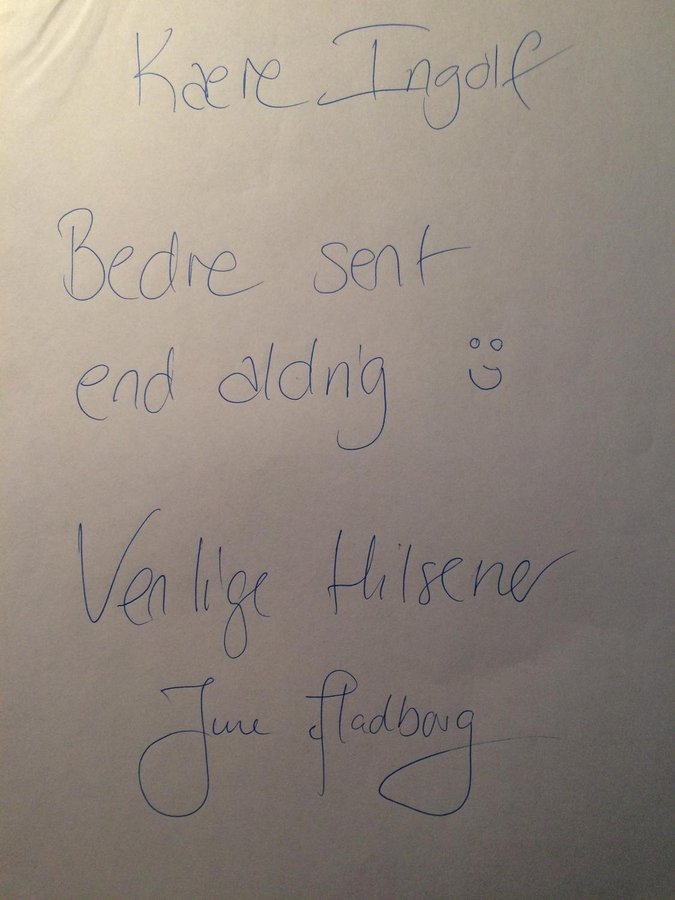 Kære Ingolf
Bedre sent
end aldrig :)
Venlige Hilsener
June Fladborg